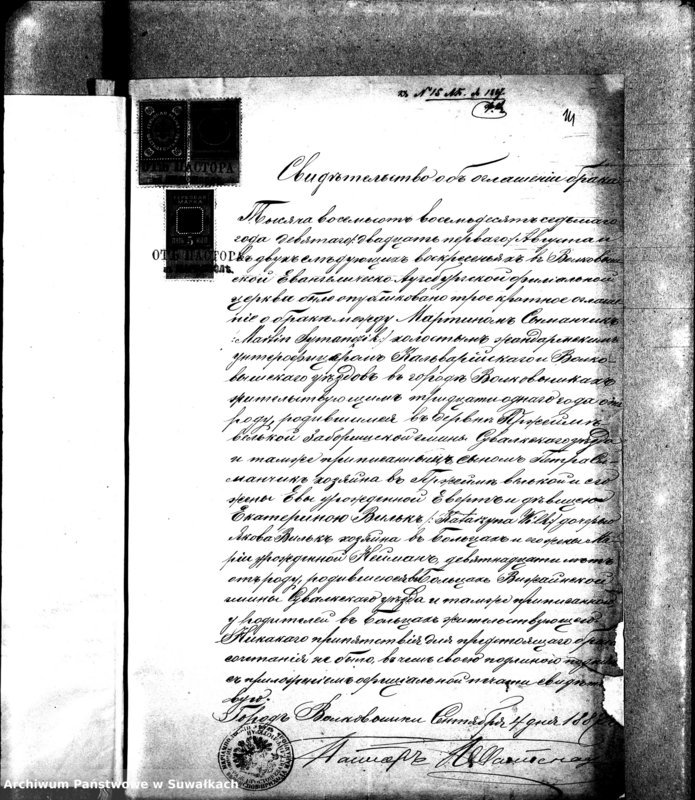 къ № 15 Ал. д. 1887
Свидѣтельство объ оглашеніи брака
Тысяча восемьсотъ восемьдесятъ седьмаго
года девятаго/двадцать перваго/Августа и
въ двухъ слѣдующихъ воскресеньяхъ въ Волковыш
ской Евангелическо Аугсбургской филіальной
церкви было опубликовано троекратное оглаше
ніе о бракѣ между Мартиномъ Сыманчикъ
/:Martin Symanzik:/ холостымъ жандармскимъ
унтерофицеромъ Кальварійскаго и Волко-
вышскаго уѣздовъ въ городѣ Волковышкахъ
жительствующимъ тридцати одного года отъ
роду, родившимся въ деревнѣ
велькой Заборишской гмины Сувалкскаго уѣзда
и тамже приписаннымъ, сыномъ Петра Сы-
манчикъ хозяина въ велькой и его
жены Евы урожденной Евертъ и дѣвицею
Екатериною Вилькъ /: Katarzyna Wilk:/ дочерью
Якова Вилькъ хозяина въ Больцахъ и его жены Ма-
ріи урожденной Нейманъ, девятнадцати лѣтъ
отъ роду, родившеюся въ Больцахъ Вижайнской
гмины Сувалкскаго уѣзда и тамже приписанной
у родителей въ Больцахъ жительствующею.
Никакого припятствія для предстоящаго брако
сочетанія не было, въ чемъ своею подписью
съ приложеніемъ официальной печати свидѣтельст
вую.
Городъ Волковышки Сентября 4 дня 1887
Пасторъ
ОТЪ ПАСТОРА
5
ОТЪ ПАСТОРА
Archiwum Państwowe w Suwałkach